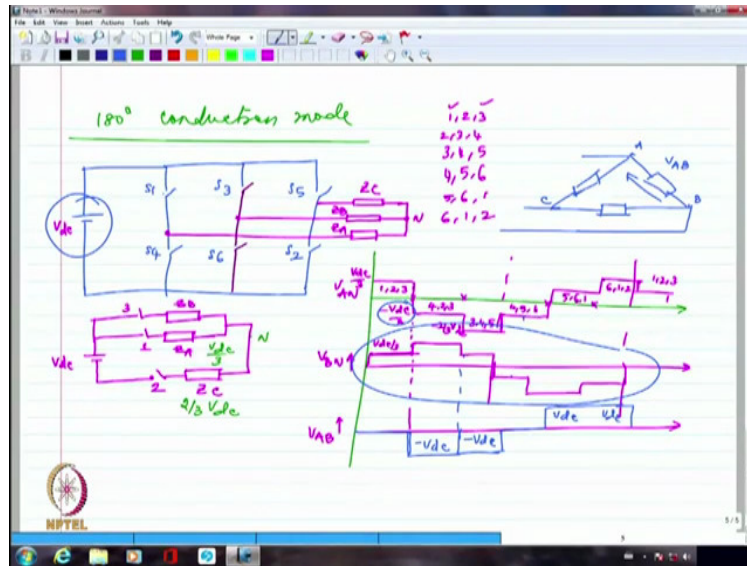 Note1 - Windows Journal
File Edit View Insert Actions Tools Help
Whole Page
180° conduction mode
1,2,3
2,3,4
3,4,5
4,5,6
5,6,1
6,1,2
A
V_AB
C
B
S1
S3
S5
Z_C
Z_B
N
Z_A
Vdc
S4
S6
S2
3
Z_B
N
Vdc
1
Z_A
Vdc/3
2
Z_C
2/3 Vdc
V_AN
Vdc/3
1,2,3
4,2,3
3,4,5
4,5,6
5,6,1
6,1,2
1,2,3
V_BN
Vdc/3
V_AB
-Vdc
-Vdc
Vdc
Vdc
NPTEL
5/5
5